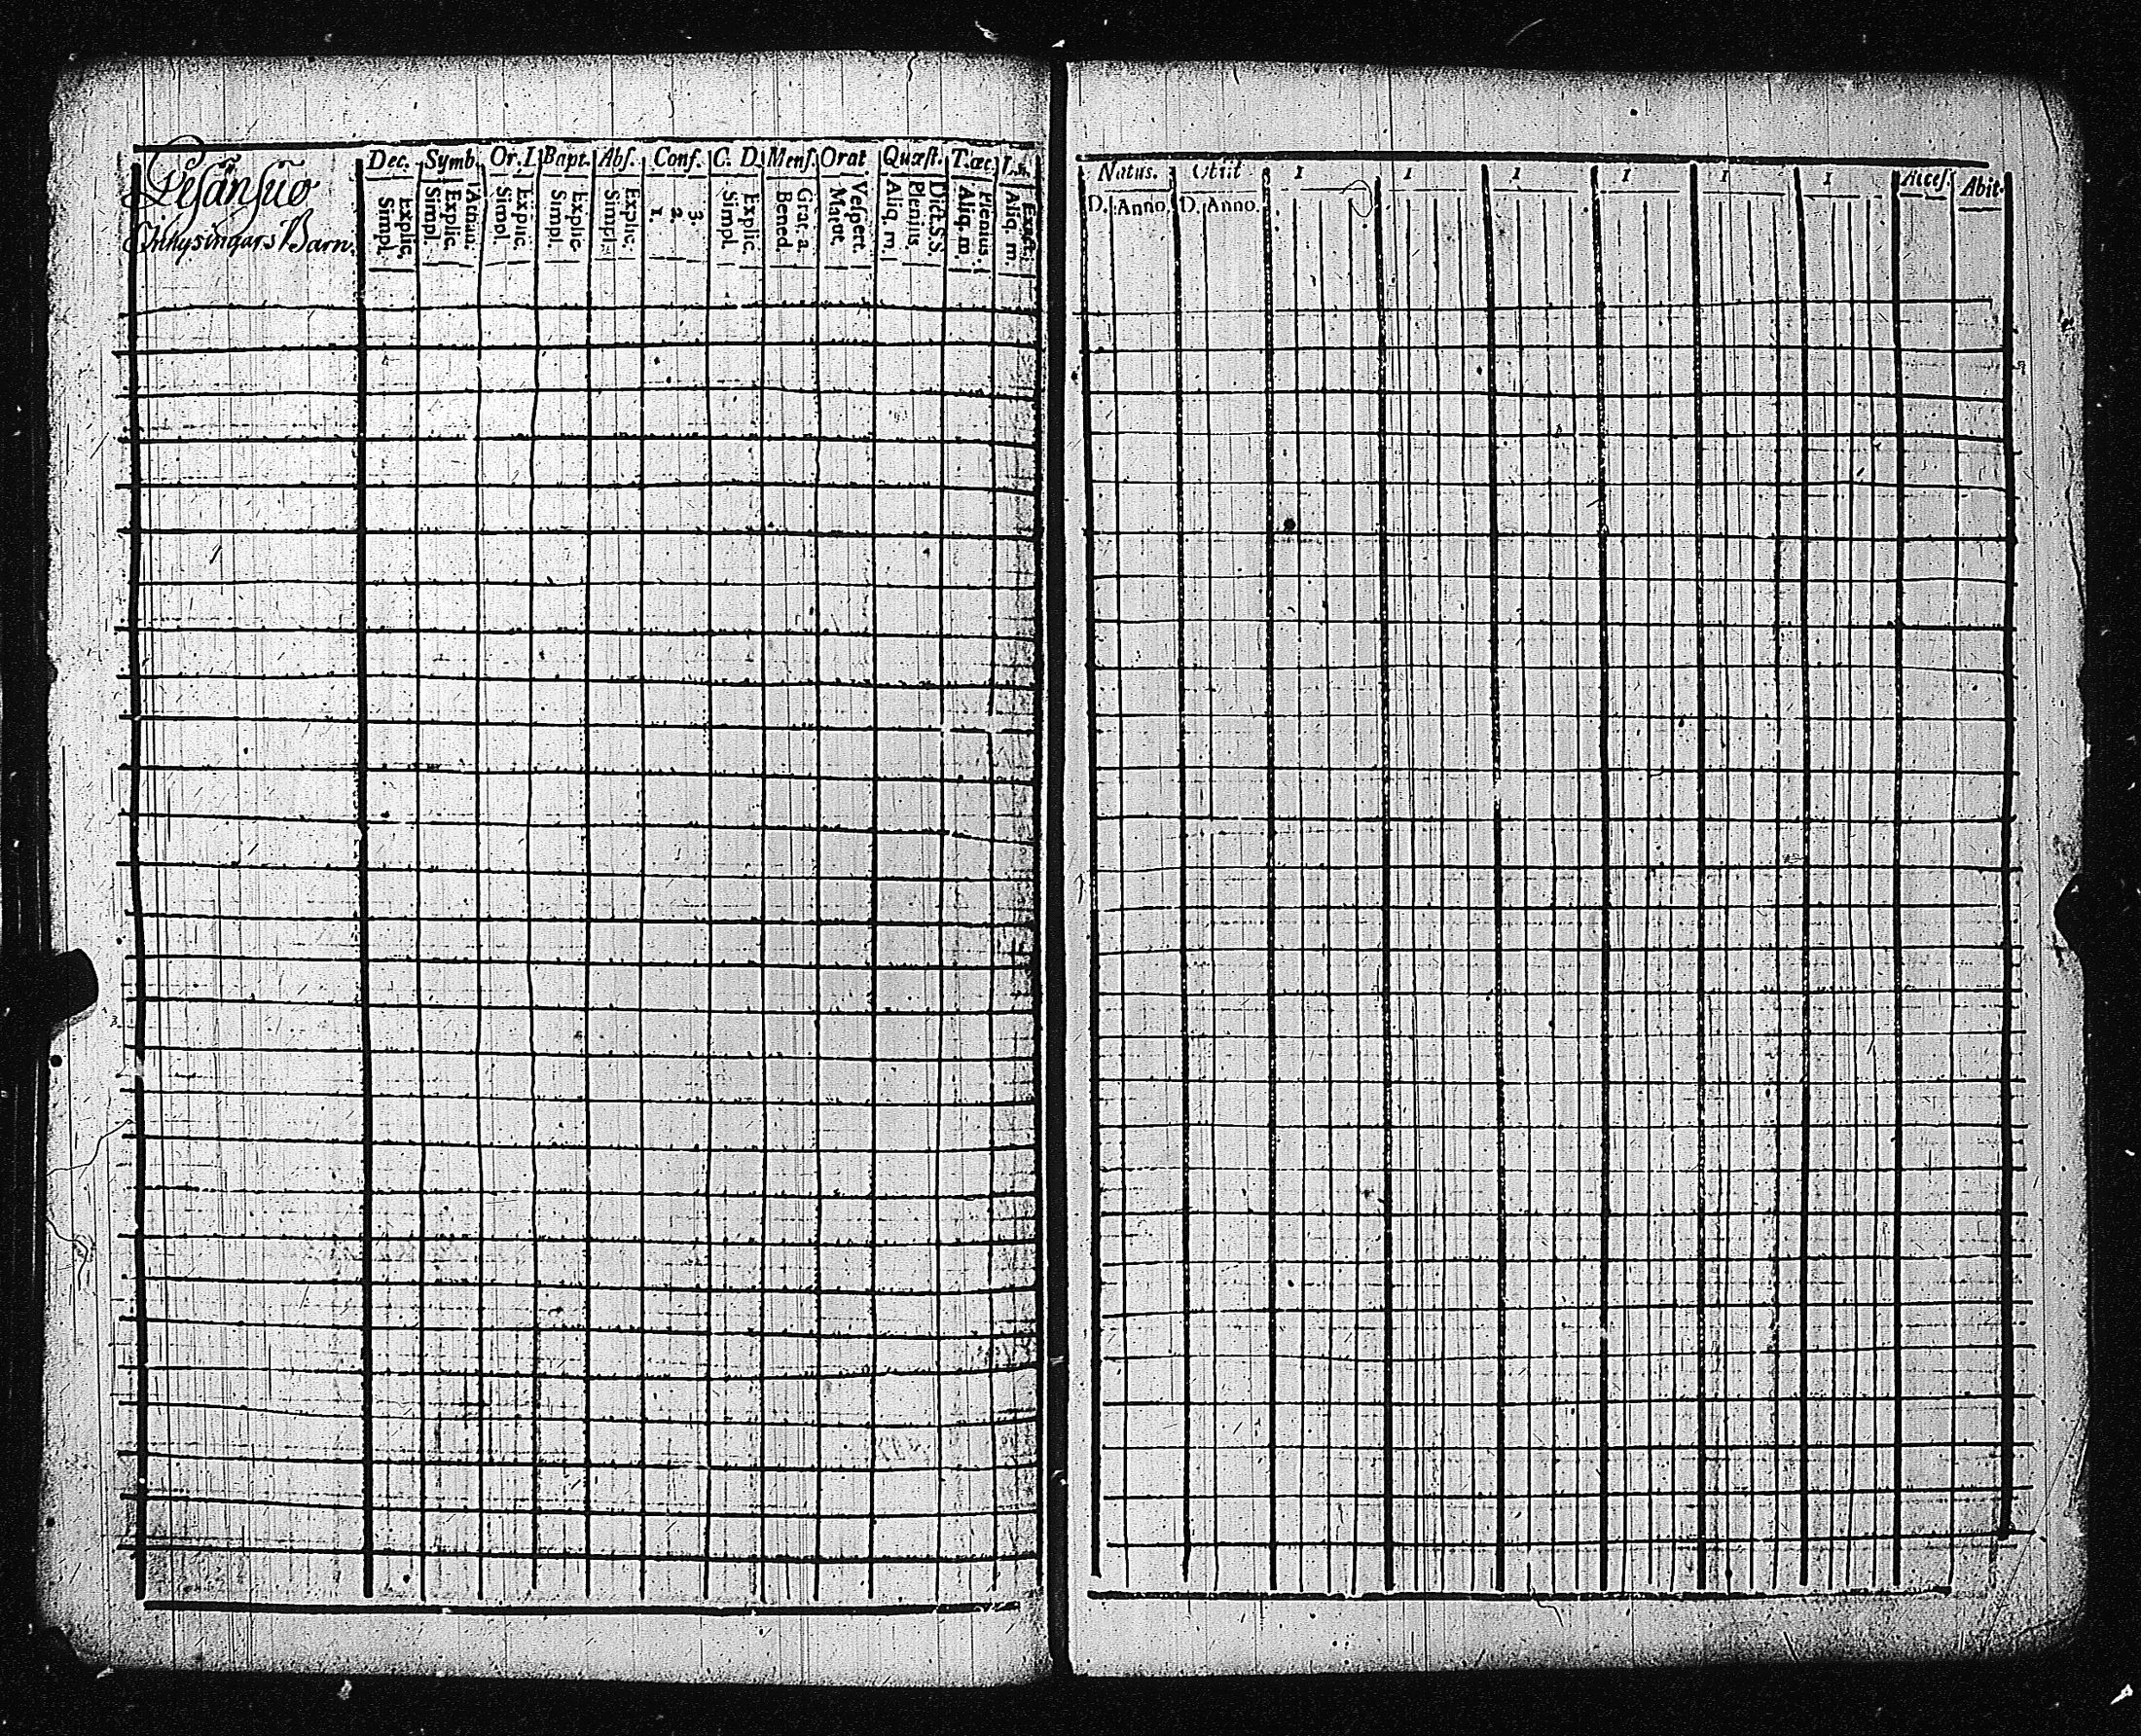 Pesänsuo
Ihhysingars Barn.
Dec. Symb. Or. I. Bapt. Abs. Conf. C. D. Mens. Orat Quæst. T. œc.
Explic. Simpl. Athan. Explic. Simpl. Explic. Simpl. Explic. Simpl. Explic. Simpl. 3. 2. 1. Explic. Simpl. Grat. a. Bened. Vespert. Matut. Dict. S.S. Plenius. Aliq. m. Plenius. Aliq. m. Exact. Aliq. m.
Natus. Obiit 1 1 1 1 1 1 Acces. Abit.
D. Anno. D. Anno.